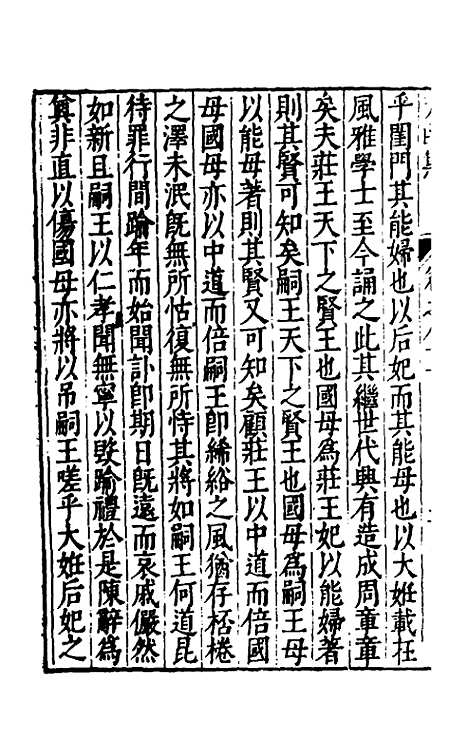 乎閨門其能婦也以后妃而其能母也以大姙載在
風雅學士至今誦之此其繼世代興有造成周章章
矣夫莊王天下之賢王也國母為莊王妃以能婦著
則其賢可知矣嗣王天下之賢王也國母為嗣王母
以能母著則其賢又可知矣顧莊王以中道而倍國
母國母亦以中道而倍嗣王卽絺綌之風猶存桮棬
之澤未泯旣無所怙復無所恃其將如嗣王何道昆
待罪行間踰年而始聞訃卽期日旣遠而哀戚儼然
如新且嗣王以仁孝聞無寧以毀踰禮於是陳辭為
奠非直以傷國母亦將以吊嗣王嗟乎大姙后妃之